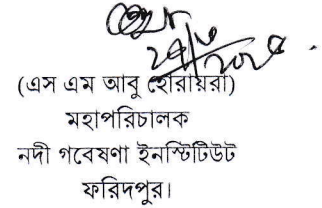 (এস এম আবু হোরায়রা)
মহাপরিচালক
নদী গবেষণা ইনস্টিটিউট
ফরিদপুর।